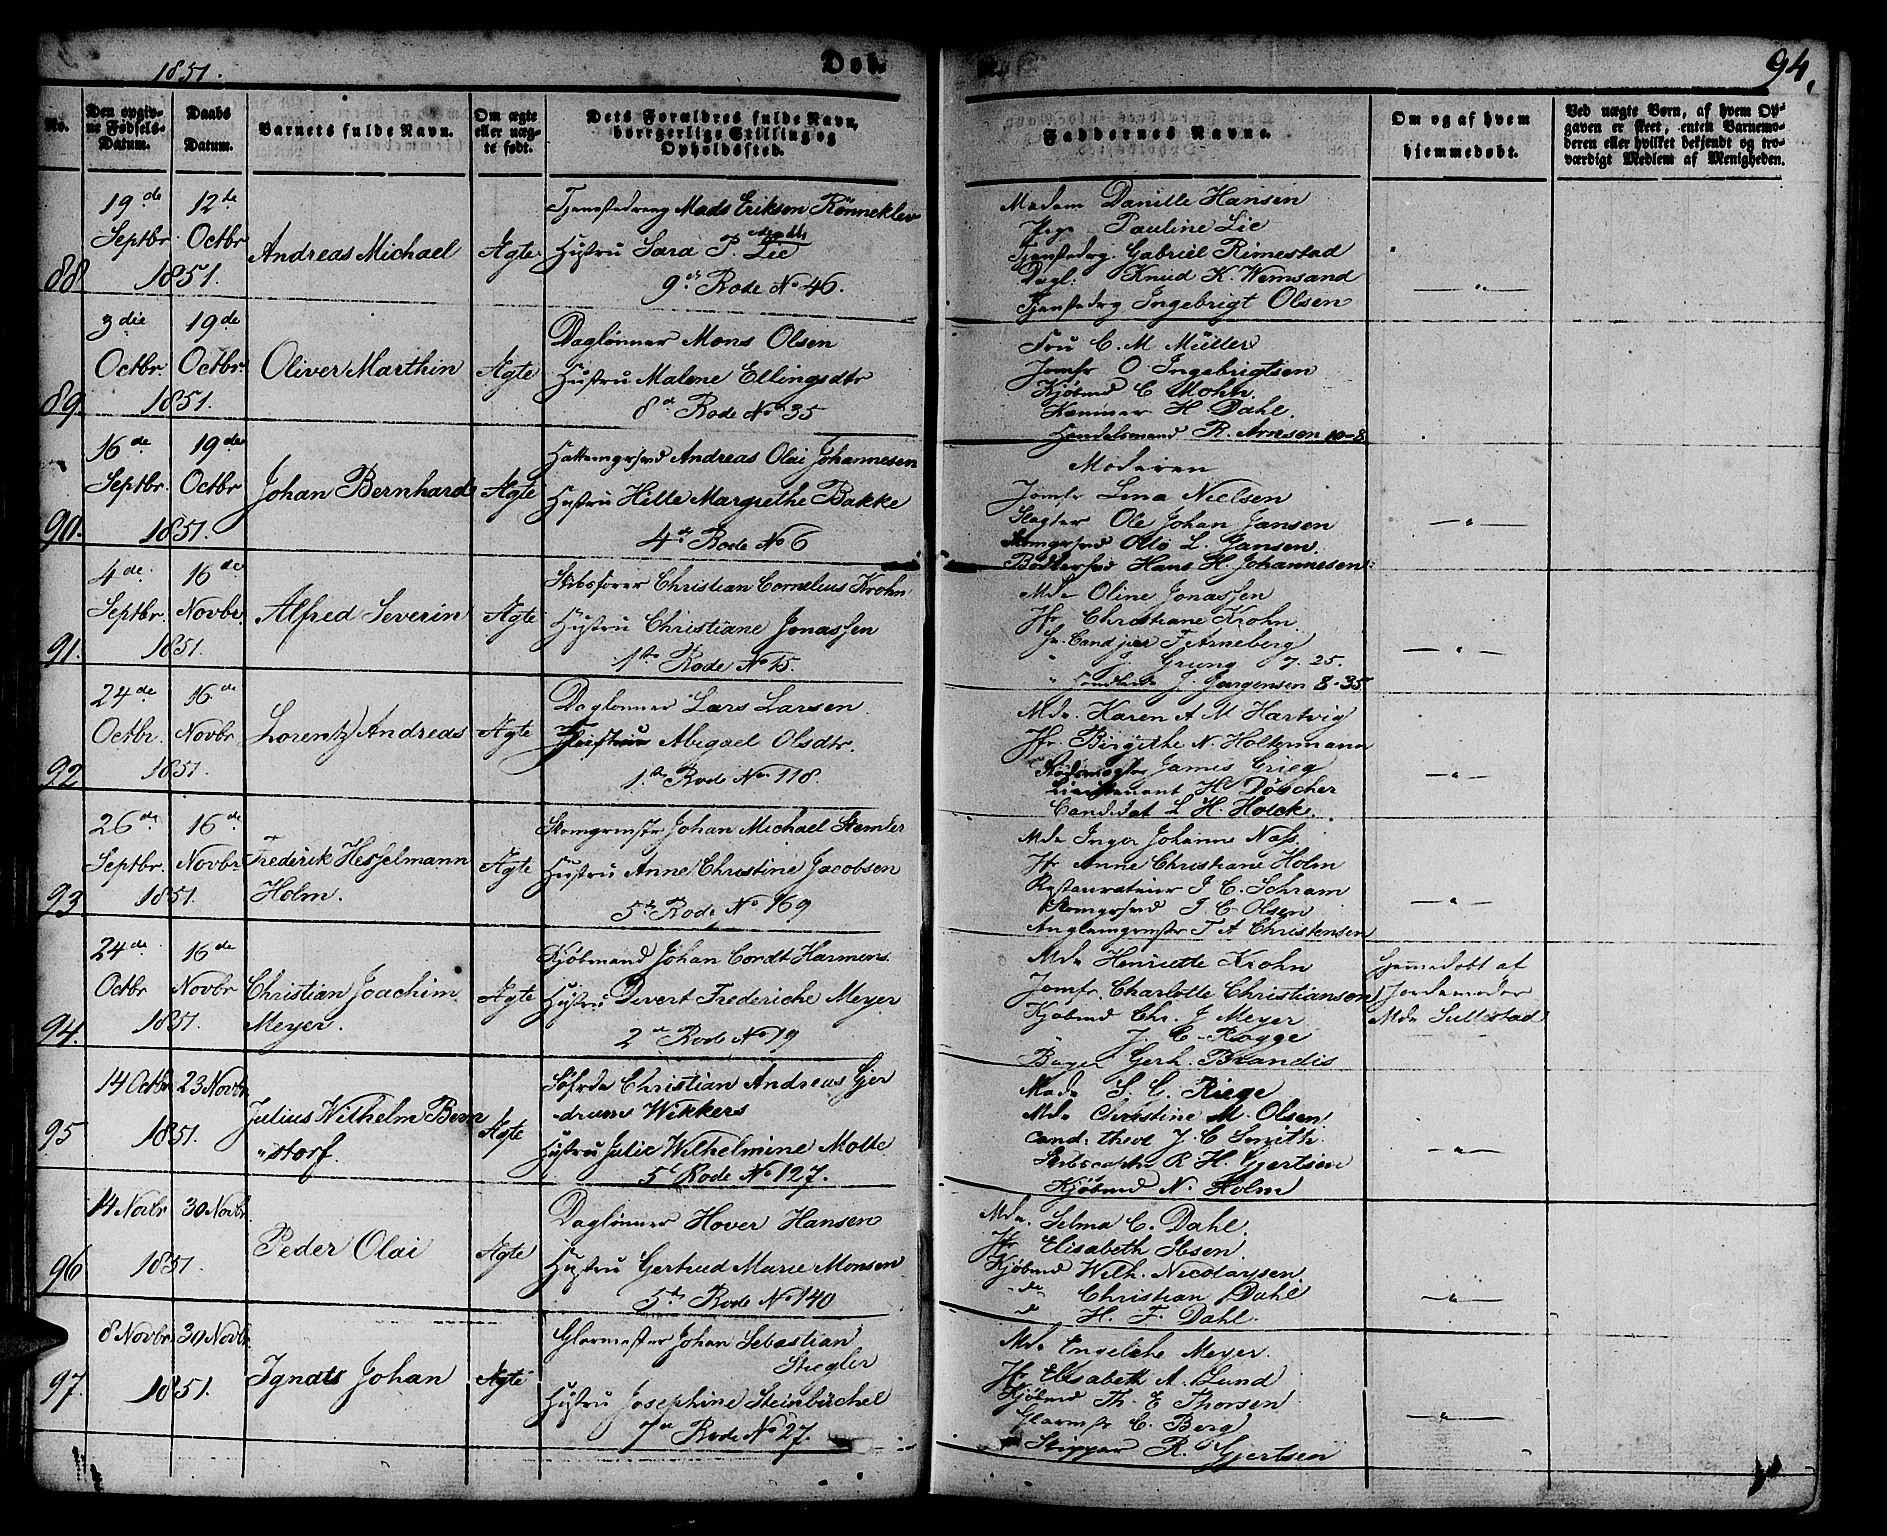 1851.
Døb
94.
No.
Den opgiv-
ne Fødsels-
Datum.
Daabs
Datum.
Barnets fulde Navn.
Om ægte
eller uæg-
te født.
Dets Forældres fulde Navn,
borgerlige Stilling og
Opholdssted.
Faddernes Navne.
Om og af hvem
hjemmedøbt.
Ved uægte Børn, af hvem Op-
gaven er skeet, enten Barnemo-
deren eller hvilket bekjendt og tro-
værdigt Medlem af Menigheden.
88
19de Septbr.
12te Octbr
1851.
Andreas Michael
Ægte
Tjenestedreng Mads Erikson Rönneklev
Hustru Sara P. Lie
9de Rode No 46.
Madam Danille Hansen
Pige Pauline Lie
Tjenestedrg. Gabriel Rimestad
Dagl: Knud K. Wemsand
Tjenestedrg Ingebrigt Olsen
89
3die Octbr
19de Octbr.
1851.
Oliver Marthin
Ægte
Daglönner Mons Olsen
Hustru Malene Ellingsdtr
8de Rode No 35
Fru C. M. Müller
Jomfr O Ingebrigtsen
Kjöbmd C Mohr.
Kæmner H. Dahl.
Handelsmand R. Arnsen 10-8.
90.
16de Septbr.
19de Octbr
1851.
Johan Bernhard
Ægte
Andreas Olai Johannesen
Hustru Hille Margrethe Bakke
4de Rode No 6
Moderen
Jomfr Lina Nielsen
Slagter Ole Johan Jansen
Skomgrsvd Otto L. Jansen.
Bödkersvd Hans H. Johannesen
91.
4de Septbr.
16de Novbr.
1851.
Alfred Severin
Ægte
Skibsförer Christian Cornelius Krohn
Hustru Christiane Jonassen
1ste Rode No 15.
Mda Oline Jonassen
Jfr Christiane Krohn
Hr. Cand jur F. Arneberg
" J. Grung 7. 25.
" J. Jurgensen 8-35
92
24de Octbr.
16de Novbr
1851.
Lorentz Andreas
Ægte
Daglönner Lars Larsen
Hustru Abigael Olsdtr.
1ste Rode No 118.
Mda. Karen A M Hartvig
Jfr. Birgithe N. Holtermann
James Grieg
Lieutenant H. Döscher
Candidat L. H. Holck.
93
26de Septbr.
16de Novbr
1851.
Frederik Hesselmann
Holm.
Ægte
Skomgrmstr Johan Michael Stemler
Hustru Anne Christine Jacobsen
5te Rode No 169
Mda Inger Johanne Næss.
Jfr Anne Christiane Holm
Restaurateur J. C. Schram
Skomgrsvd J C Olsen
T A Christensen
94.
24de Octbr
16de Novbr
1851.
Christian Joachim
Meyer.
Ægte
Kjöbmand Johan Cordt Harmens
Hustru Devert Frederiche Meyer
2de Rode No 19
Mda Henriette Krohn
Jomfr. Charlotte Christiansen
Kjöbmd Chr. J Meyer
" J. C. Rogge
Bager Gerh. Brandis
Hjemmedöbt af
Jordemoder
Mda Sullestad
95
14 Octbr
23 Novbr
1851.
Julius Wilhelm Bern
"storf.
Ægte
Christian Andreas Gjer
drum Wikkers
Hustru Julie Wilhelmine Motte
5te Rode No 127.
Mada S. C. Riege
Mda Christine M. Olsen
cand: theol J. C Smith.
Skibscaptn R. H. Gjertsen
Kjöbmd N. Holm
96
14 Novbr
30 Novbr.
1851.
Peder Olai
Ægte
Daglönner Hover Hansen
Hustru Gertrud Marie Monsen
5te Rode No 140
Mda. Selma C. Dahl.
Jfr Elisabeth Ibsen.
Kjöbmd Wilh. Nicolaysen
do Christian Dahl
d H. F. Dahl.
97.
8 Novbr
30 Novbr
1851.
Ignats Johan
Ægte
Glarmester Johan Sebastian
Stiegler
Hustru Josephine Steinbüchel
7de Rode No 27.
Mda Engelche Meyer.
Jfr Elisabeth A. Lund
Kjöbmd Th. E Thorsen
Glarmstr C. Berg
Skipper R. Gjertsen